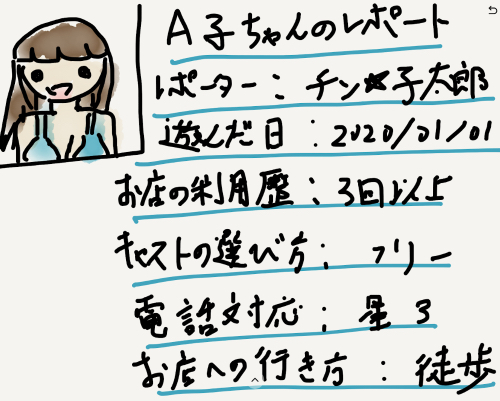 A子ちゃんのレポート
レポーター：チン★子太郎
遊んだ日：2020/01/01
お店の利用歴：3回以上
キャストの選び方：フリー
電話対応：星3
お店への行き方：徒歩